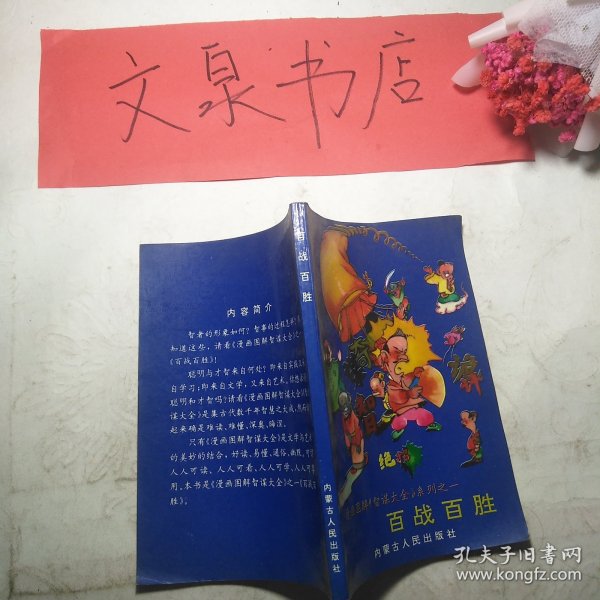 文泉书店
内容简介
智者的形象如何?智事的过程怎样?
知道这些,请看《漫画图解智谋大全》之一
《百战百胜》!
聪明与才智来自何处?即来自实践
自学习;即来自文学,又来自艺术。
聪明和才智吗?请看《漫画图解
谋大全》是集古代数千年智慧之大成,
起来确是难读、难懂、深奥、晦涩。
只有《漫画图解智谋大全》是文学与艺
的美妙的结合,好读、易懂、通俗、幽默,可
人人可读,人人可看,人人可学,人人可
用。本书是《漫画图解智谋大全》之一《百战百
胜》。
百战百胜
内蒙古人民出版社
智
绝
智谋大全》系列之一
百战百胜
内蒙古人民出版社
孔夫子旧书网
www.kongfz.com